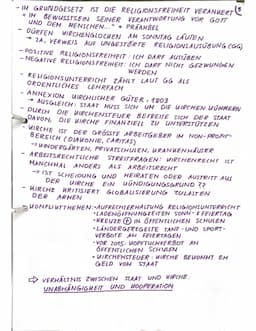 - IM GRUNDGESETZ IST DIE RELIGIONSFREIHEIT VERANKERT
" IM BEWUSSTSEIN SEINER VERANTWORTUNG VOR GOTT
UND DEN MENSCHEN..." → PRÄAMBEL
- DÜRFEN KIRCHENGLOCKEN AM SONNTAG LÄUTEN
→ JA, VERWEIS AUF UNGESTÖRTE RELIGIONSAUSÜBUNG (GG)
- POSITIVE RELIGIONSFREIHEIT: ICH DARF AUSÜBEN
- NEGATIVE RELIGIONSFREIHEIT: ICH DARF NICHT GEZWUNGEN
WERDEN
- RELIGIONSUNTERRICHT ZÄHLT LAUT GG ALS
ORDENTLICHES LEHRFACH
- ANNEXION KIRCHLICHER GÜTER 1803
→ AUSGLEICH: STAAT MUSS SICH UM DIE KIRCHEN KÜMMERN
- DURCH DIE KIRCHENSTEUER BEFREIT SICH DER STAAT
DAVON, DIE KIRCHE FINANZIELL ZU UNTERSTÜTZEN
- KIRCHE IST DER GRÖSSTE ARBEITGEBER IM NON-PROFIT-
BEREICH (DIAKONIE, CARITAS)
→ KINDERGÄRTEN, PRIVATSCHULEN, KRANKENHÄUSER
- ARBEITSRECHTLICHE STREITFRAGEN: KIRCHENRECHT IST
MANCHMAL ANDERS ALS ARBEITSRECHT
→ IST SCHEIDUNG UND HEIRATEN ODER AUSTRITT AUS
DER KIRCHE EIN KÜNDIGUNGSGRUND ??
- KIRCHE KRITISIERT GLOBALISIERUNG ZULASTEN
DER ARMEN
- KONFLIKTTHEMEN: • AUFRECHERHALTUNG RELIGIONSUNTERRICHT
• LADENÖFFNUNGSZEITEN SONN- & FEIERTAG
• KREUZE IN ÖFFENTLICHEN SCHULEN
• LÄNDERGEREGELTE TANZ- UND SPORT-
VERBOTE AN FEIERTAGEN
• VOR 2015: KOPFTUCHVERBOT AN
ÖFFENTLICHEN SCHULEN
• KIRCHENSTEUER: KIRCHE BEKOMMT EH
GELD VOM STAAT
⇒ VERHÄLTNIS ZWISCHEN STAAT UND KIRCHE:
UNABHÄNGIGKEIT UND KOOPERATION